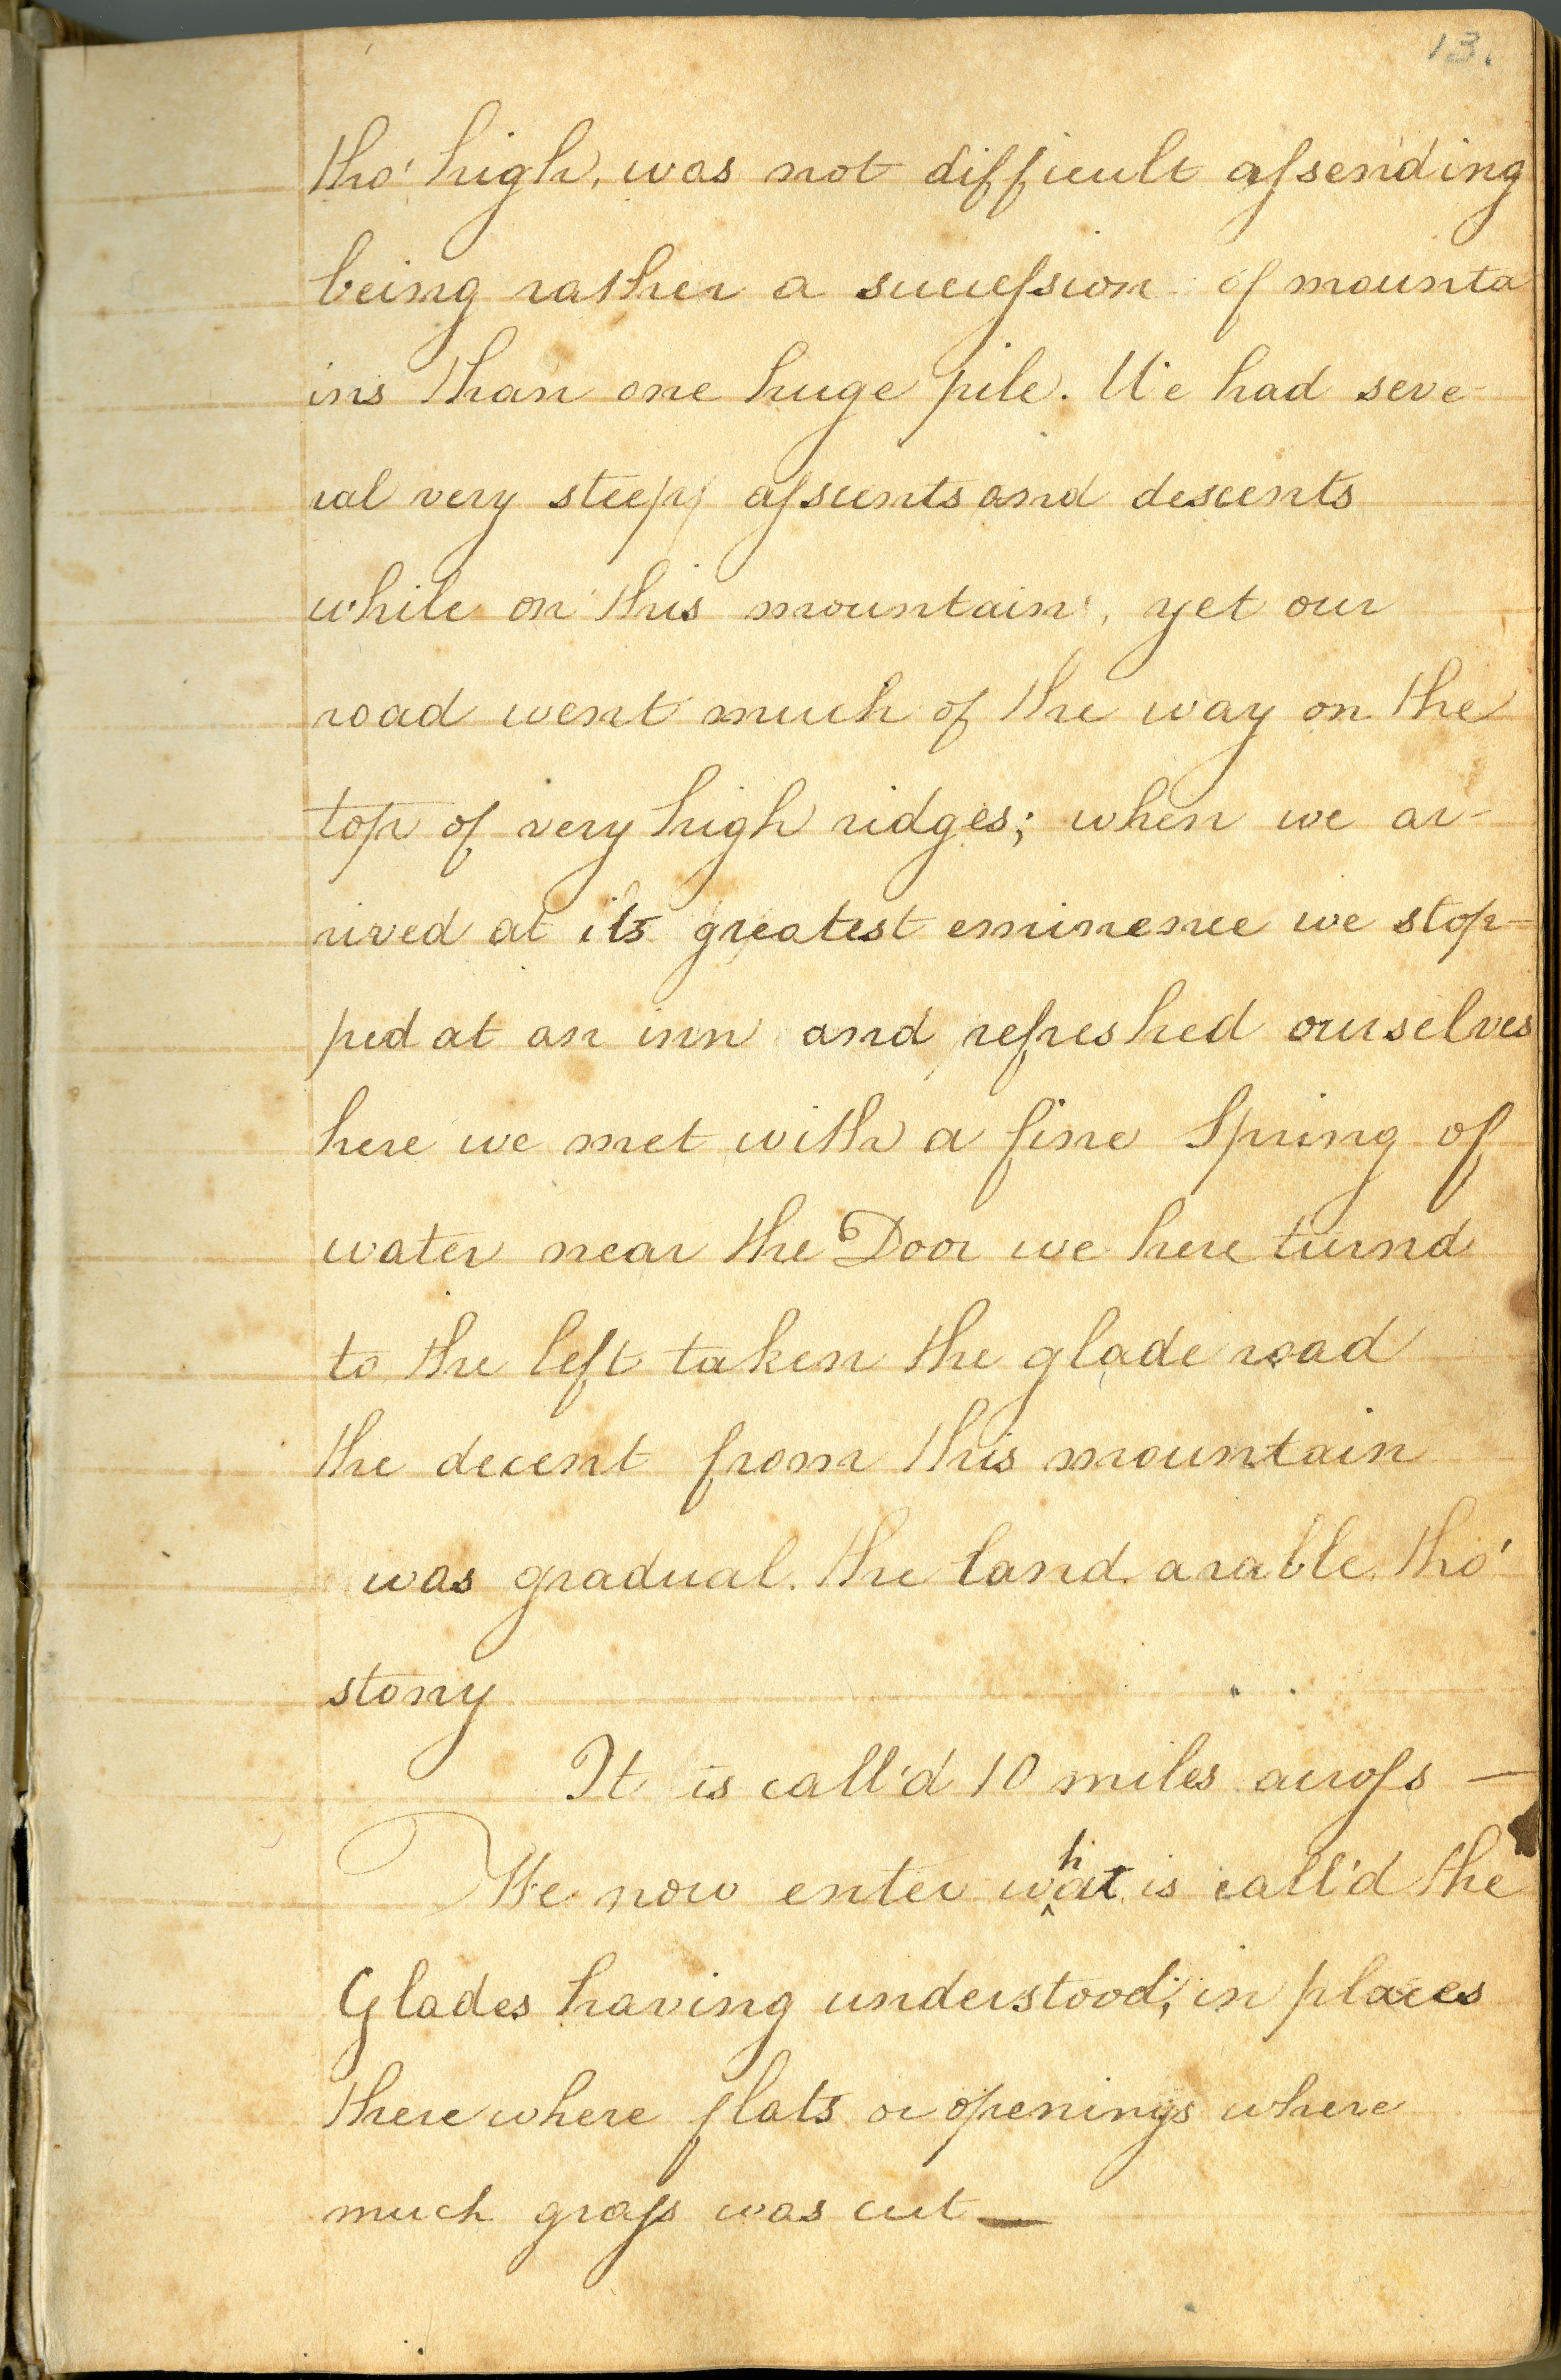 13.
tho' high, was not difficult assending
being rasther a succession of mounta
ins than one huge pile. We had seve-
ral very steepy asscents and descents
while on this mountain, yet our
road went much of the way on the
top of very high ridges; when we ar-
rived at its greatest eminence we stop-
ped at an inn and refreshed ourselves
here we met with a fine Spring of
water near the Door we here turnd
to the left taken the glade road
the decent from this mountain
was gradual. the land arable. tho'
stony
It is call'd 10 miles across —
We now enter what is call'd the
Glades having understood; in places
there where flats or openings where
much grass was cut —